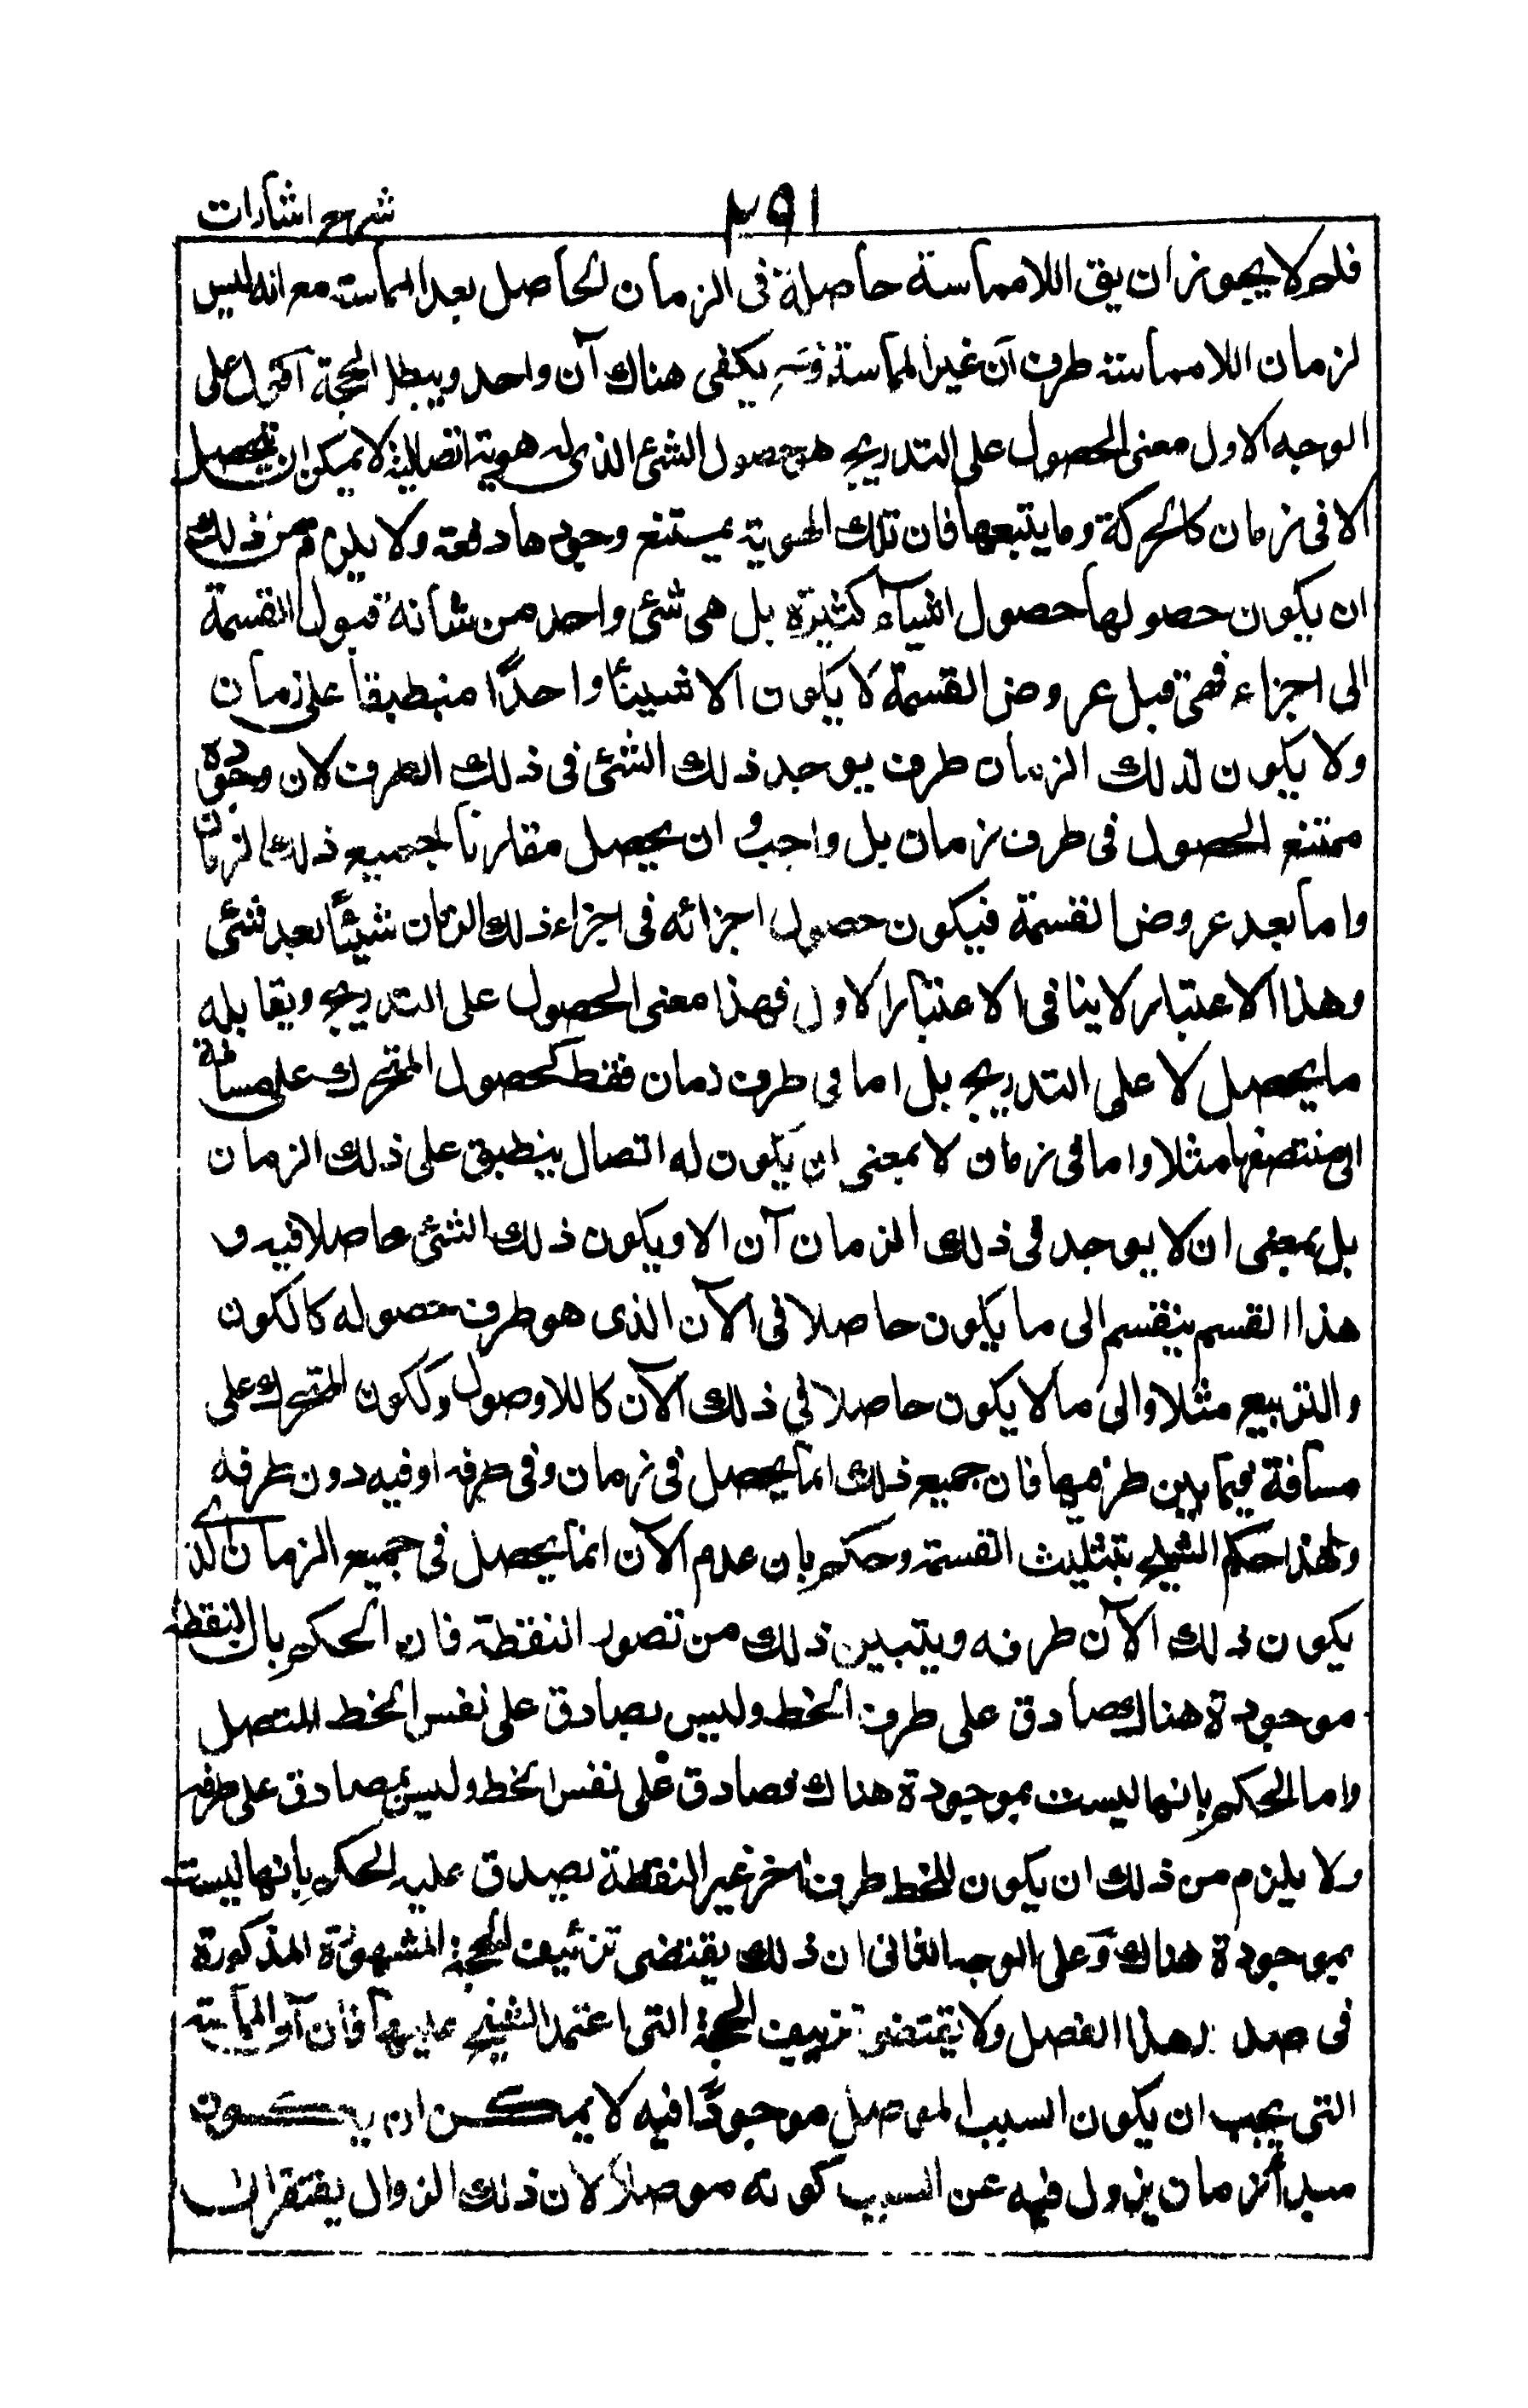 شرح اشارات
٢٥١
فلم لا يجوز ان يق اللامماسة حاصلة فى الزمان الحاصل بعد المماسة مع انه ليس
لزمان اللامماسة طرف آن غير المماسة وح يكفى هناك آن واحد ويبطل الحجة اقول على
الوجه الاول معنى الحصول على التدريج هو حصول الشئ الذى له هوية اتصالية لا يمكن ان يحصل
الا فى زمان كالحركة وما يتبعها فان تلك الهوية يمتنع وجودها دفعة ولا يلزم من ذلك
ان يكون حصولها حصول اشياء كثيرة بل هى شئ واحد من شانه قبول القسمة
الى اجزاء فهى قبل عروض القسمة لا يكون الا شيئا واحدًا منطبقا على زمان
ولا يكون لذلك الزمان طرف يوجد ذلك الشئ فى ذلك الطرف لان وجوده
ممتنع الحصول فى طرف زمان بل واجب ان يحصل مقارنا لجميع ذلك الزمان
واما بعد عروض القسمة فيكون حصول اجزائه فى اجزاء ذلك الزمان شيئًا بعد شئ
وهذا الاعتبار لا ينافى الاعتبار الاول فهذا معنى الحصول على التدريج ويقابله
ما يحصل لا على التدريج بل اما فى طرف زمان فقط كحصول المتحرك على مسافة
الى منتصفها مثلا واما فى زمان لا بمعنى ان يكون له اتصال ينطبق على ذلك الزمان
بل بمعنى ان لا يوجد فى ذلك الزمان آن الا ويكون ذلك الشئ حاصلا فيه و
هذا القسم ينقسم الى ما يكون حاصلا فى الآن الذى هو طرف حصوله كالكون
والتربيع مثلا والى ما لا يكون حاصلا فى ذلك الآن كاللاوصول وككون المتحرك على
مسافة فيما بين طرفيها فان جميع ذلك انما يحصل فى زمان وفى طرفه او فيه دون طرفه
ولهذا حكم الشيخ بتثليث القسمة وحكم بان عدم الآن انما يحصل فى جميع الزمان الذى
يكون ذلك الآن طرفه ويتبين ذلك من تصور النقطة فان الحكم بان النقطة
موجودة هناك صادق على طرف الخط وليس بصادق على نفس الخط المتصل
واما الحكم بانها ليست بموجودة هناك فصادق على نفس الخط وليس بصادق على طرفه
ولا يلزم من ذلك ان يكون للخط طرف آخر غير النقطة يصدق عليه الحكم بانها ليست
بموجودة هناك وعلى الوجه الثانى ان ذلك يقتضى تزئيف الحجة المشهورة المذكورة
فى صدر هذا الفصل ولا يقتضى تزييف الحجة التى اعتمد الشيخ عليها فان آن المماسة
التى يجب ان يكون السبب الموصل موجودًا فيه لا يمكن ان يكون
مبدأ زمان يزول فيه عن السبب كونه موصلا لان ذلك الزوال يفتقر الى